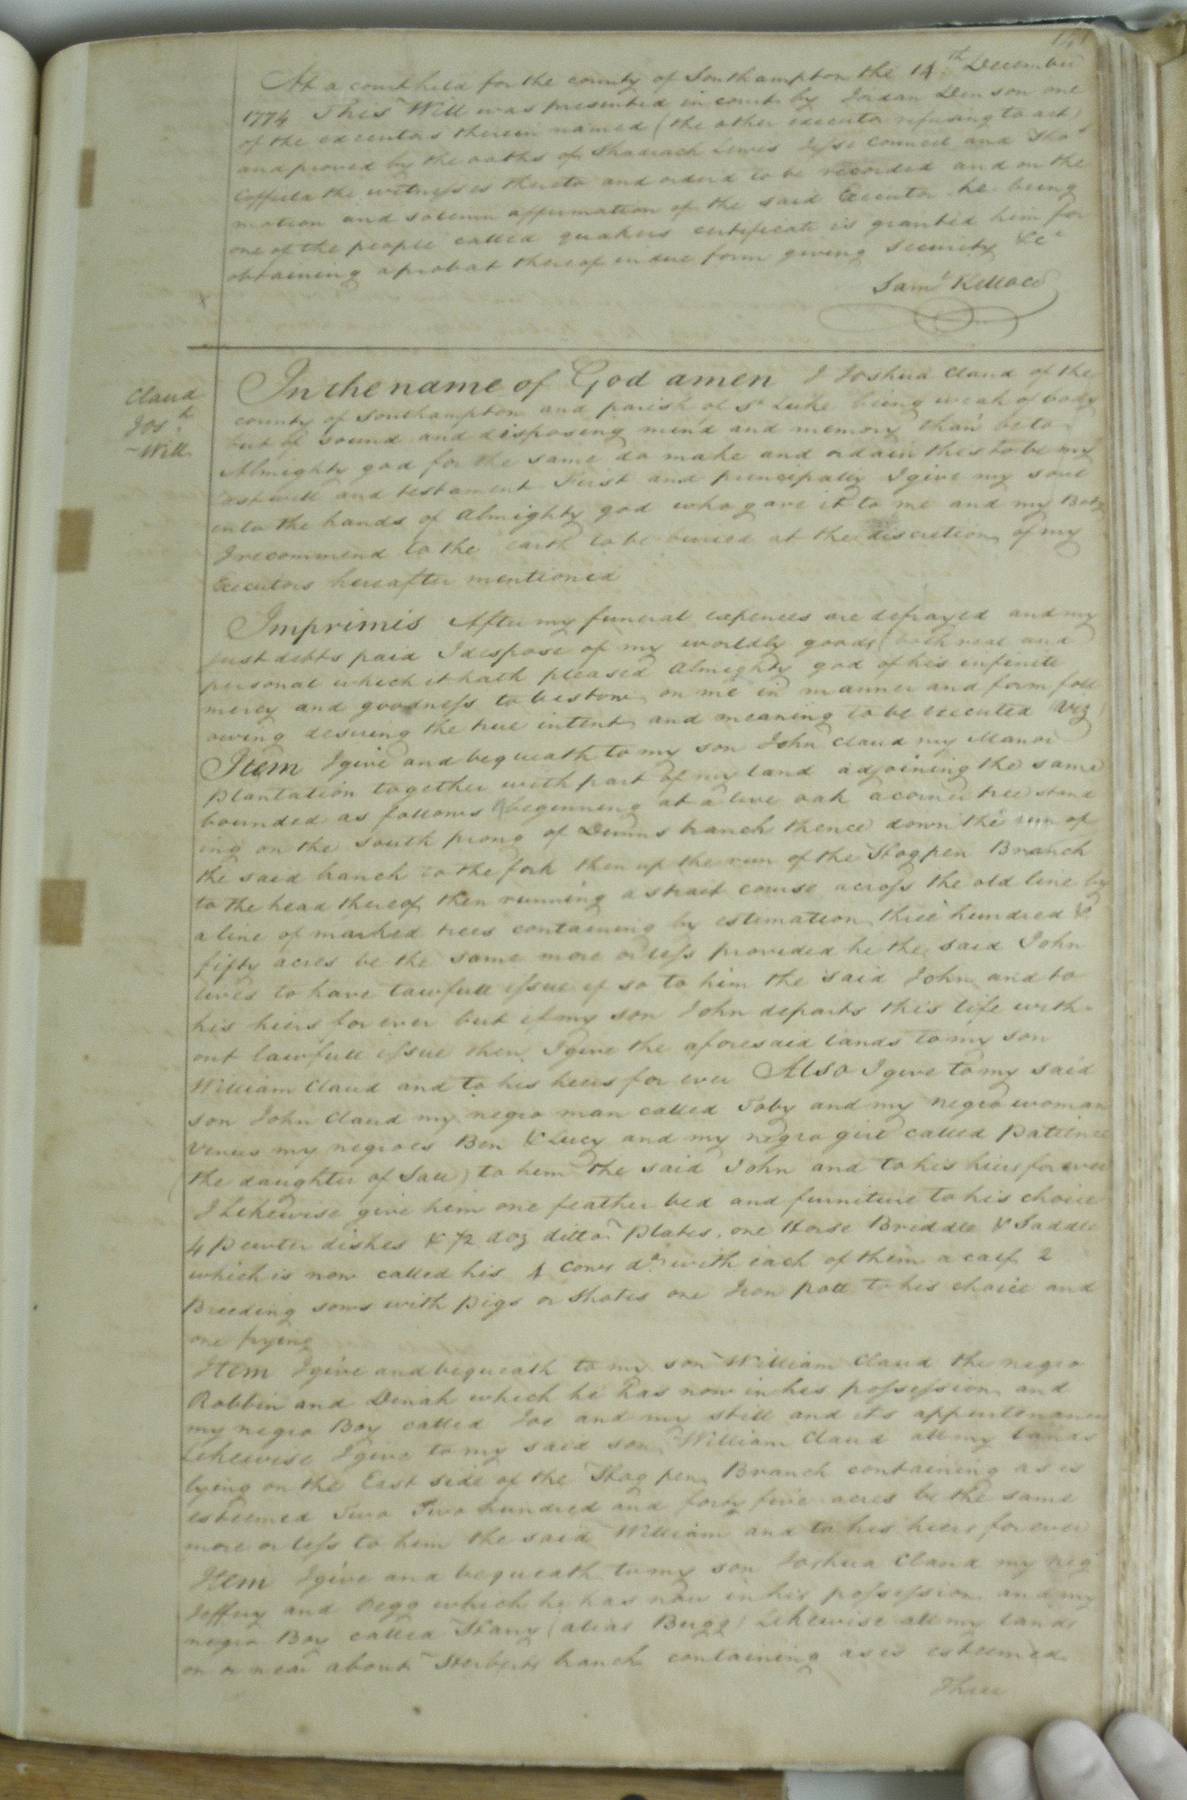 At a court held for the county of Southampton the 14th December
1774 This Will was presented in court by Jordan Denson one
of the executors therein named (the other executor refusing to act)
and proved by the oaths of Shadrach Lewis Jesse Council and Thos
the witnesses thereto and orderd to be recorded and on the
motion and solemn affirmation of the said Executor he being
one of the people called quakers certificate is granted him for
obtaining a probat thereof in due form giving security &c
Saml Kello CC
Claud
Josh
Will
In the name of God amen I Joshua Claud of the
county of Southampton and parish of St Luke being weak of body
but of sound and disposing mind and memory than be to
Almighty god for the same do make and ordain this to be my
last will and testament First and principally I give my soul
into the hands of Almighty god who gave it to me and my Body
I recommend to the earth to be buried at the discretion of my
Executors hereafter mentioned
Imprimis After my funeral expences are defrayed and my
just debts paid I dispose of my worldly goods (both real and
personal which it hath pleased Almighty god of his infinite
mercy and goodness to bestow on me in manner and form foll
owing desiring the true intent and meaning to be executed Viz)
Item I give and bequeath to my son John Claud my Manor
plantation together with part of my land adjoining the same
bounded as follows (beginning at a live oak a corner tree stand
ing on the south prong of branch thence down the run of
the said branch to the fork then up the run of the Hogpen Branch
to the head thereof then running a strait course across the old line by
a line of marked trees containing by estimation three hundred &
fifty acres be the same more or less provided he the said John
lives to have lawfull issue if so to him the said John and to
his hiers for ever but if my son John departs this life with
out lawfull issue then I give the aforesaid lands to my son
William Claud and to his heirs for ever Also I give to my said
son John Claud my negro man called Toby and my negro woman
Venus my negroes Ben & Lucy and my negro girl called Patience
(the daughter of Sall) to him the said John and to his hiers for ever
I Likewise give him one feather bed and furniture to his choice
4 pewter dishes & 1/2 doz ditto plates, one Horse Briddle & Saddle
which is now called his 4 cows do with each of them a calf 2
Breeding sows with pigs or shotes one Iron pott to his choice and
one frying
Item I give and bequeath to my son William Claud the negro
Robbin and Dinah which he has now in his possession and
my negro Boy called Joe and my still and its appurtenances
Likewise I give to my said son William Claud all my lands
lying on the East side of the Hogpen Branch containing as is
esteemed Two Two hundred and forty five acres be the same
more or less to him the said William and to his hiers for ever
Item I give and bequeath to my son Joshua Claud my neg
Jeffery and Pegg which he has now in his possession and my
negro Boy called Harry (alias Bugg) Likewise all my lands
on or near about branch containing as is esteemed
Three